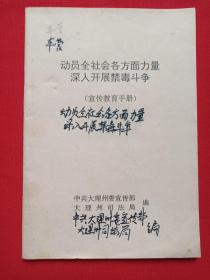 车营
车营
动员全社会各方面力量
深入开展禁毒斗争
(宣传教育手册)
动员全社会各方面力量
深入开展禁毒斗争
中共大理州委宣传部
大理州司法局 编
中共大理州委宣传部
大理州司法局 编